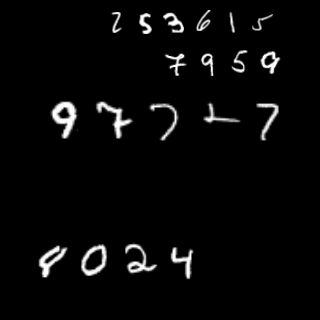 253615
7959
97727
8024